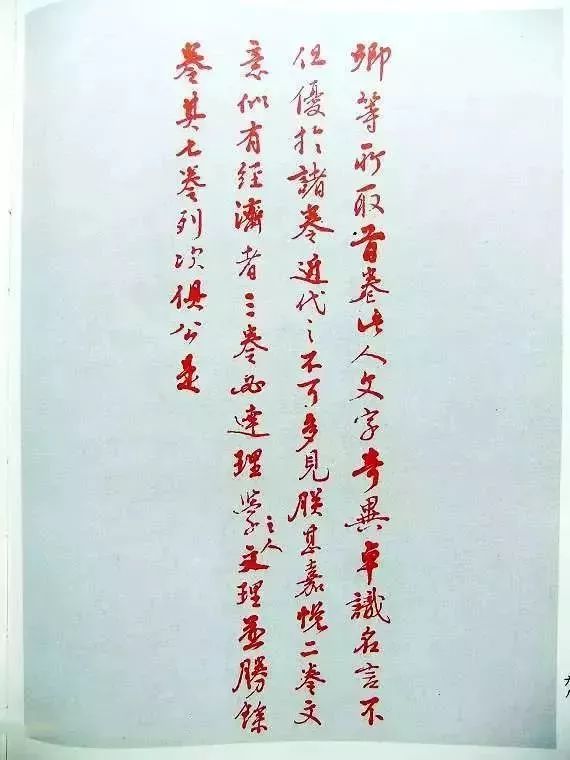 卿等所取首卷此人文字奇異卓識名言不
但優於諸卷近代之不可多見朕甚嘉悅二卷文
意似有經濟者三卷必達理學之人文理並勝餘
卷其七卷列次俱公是